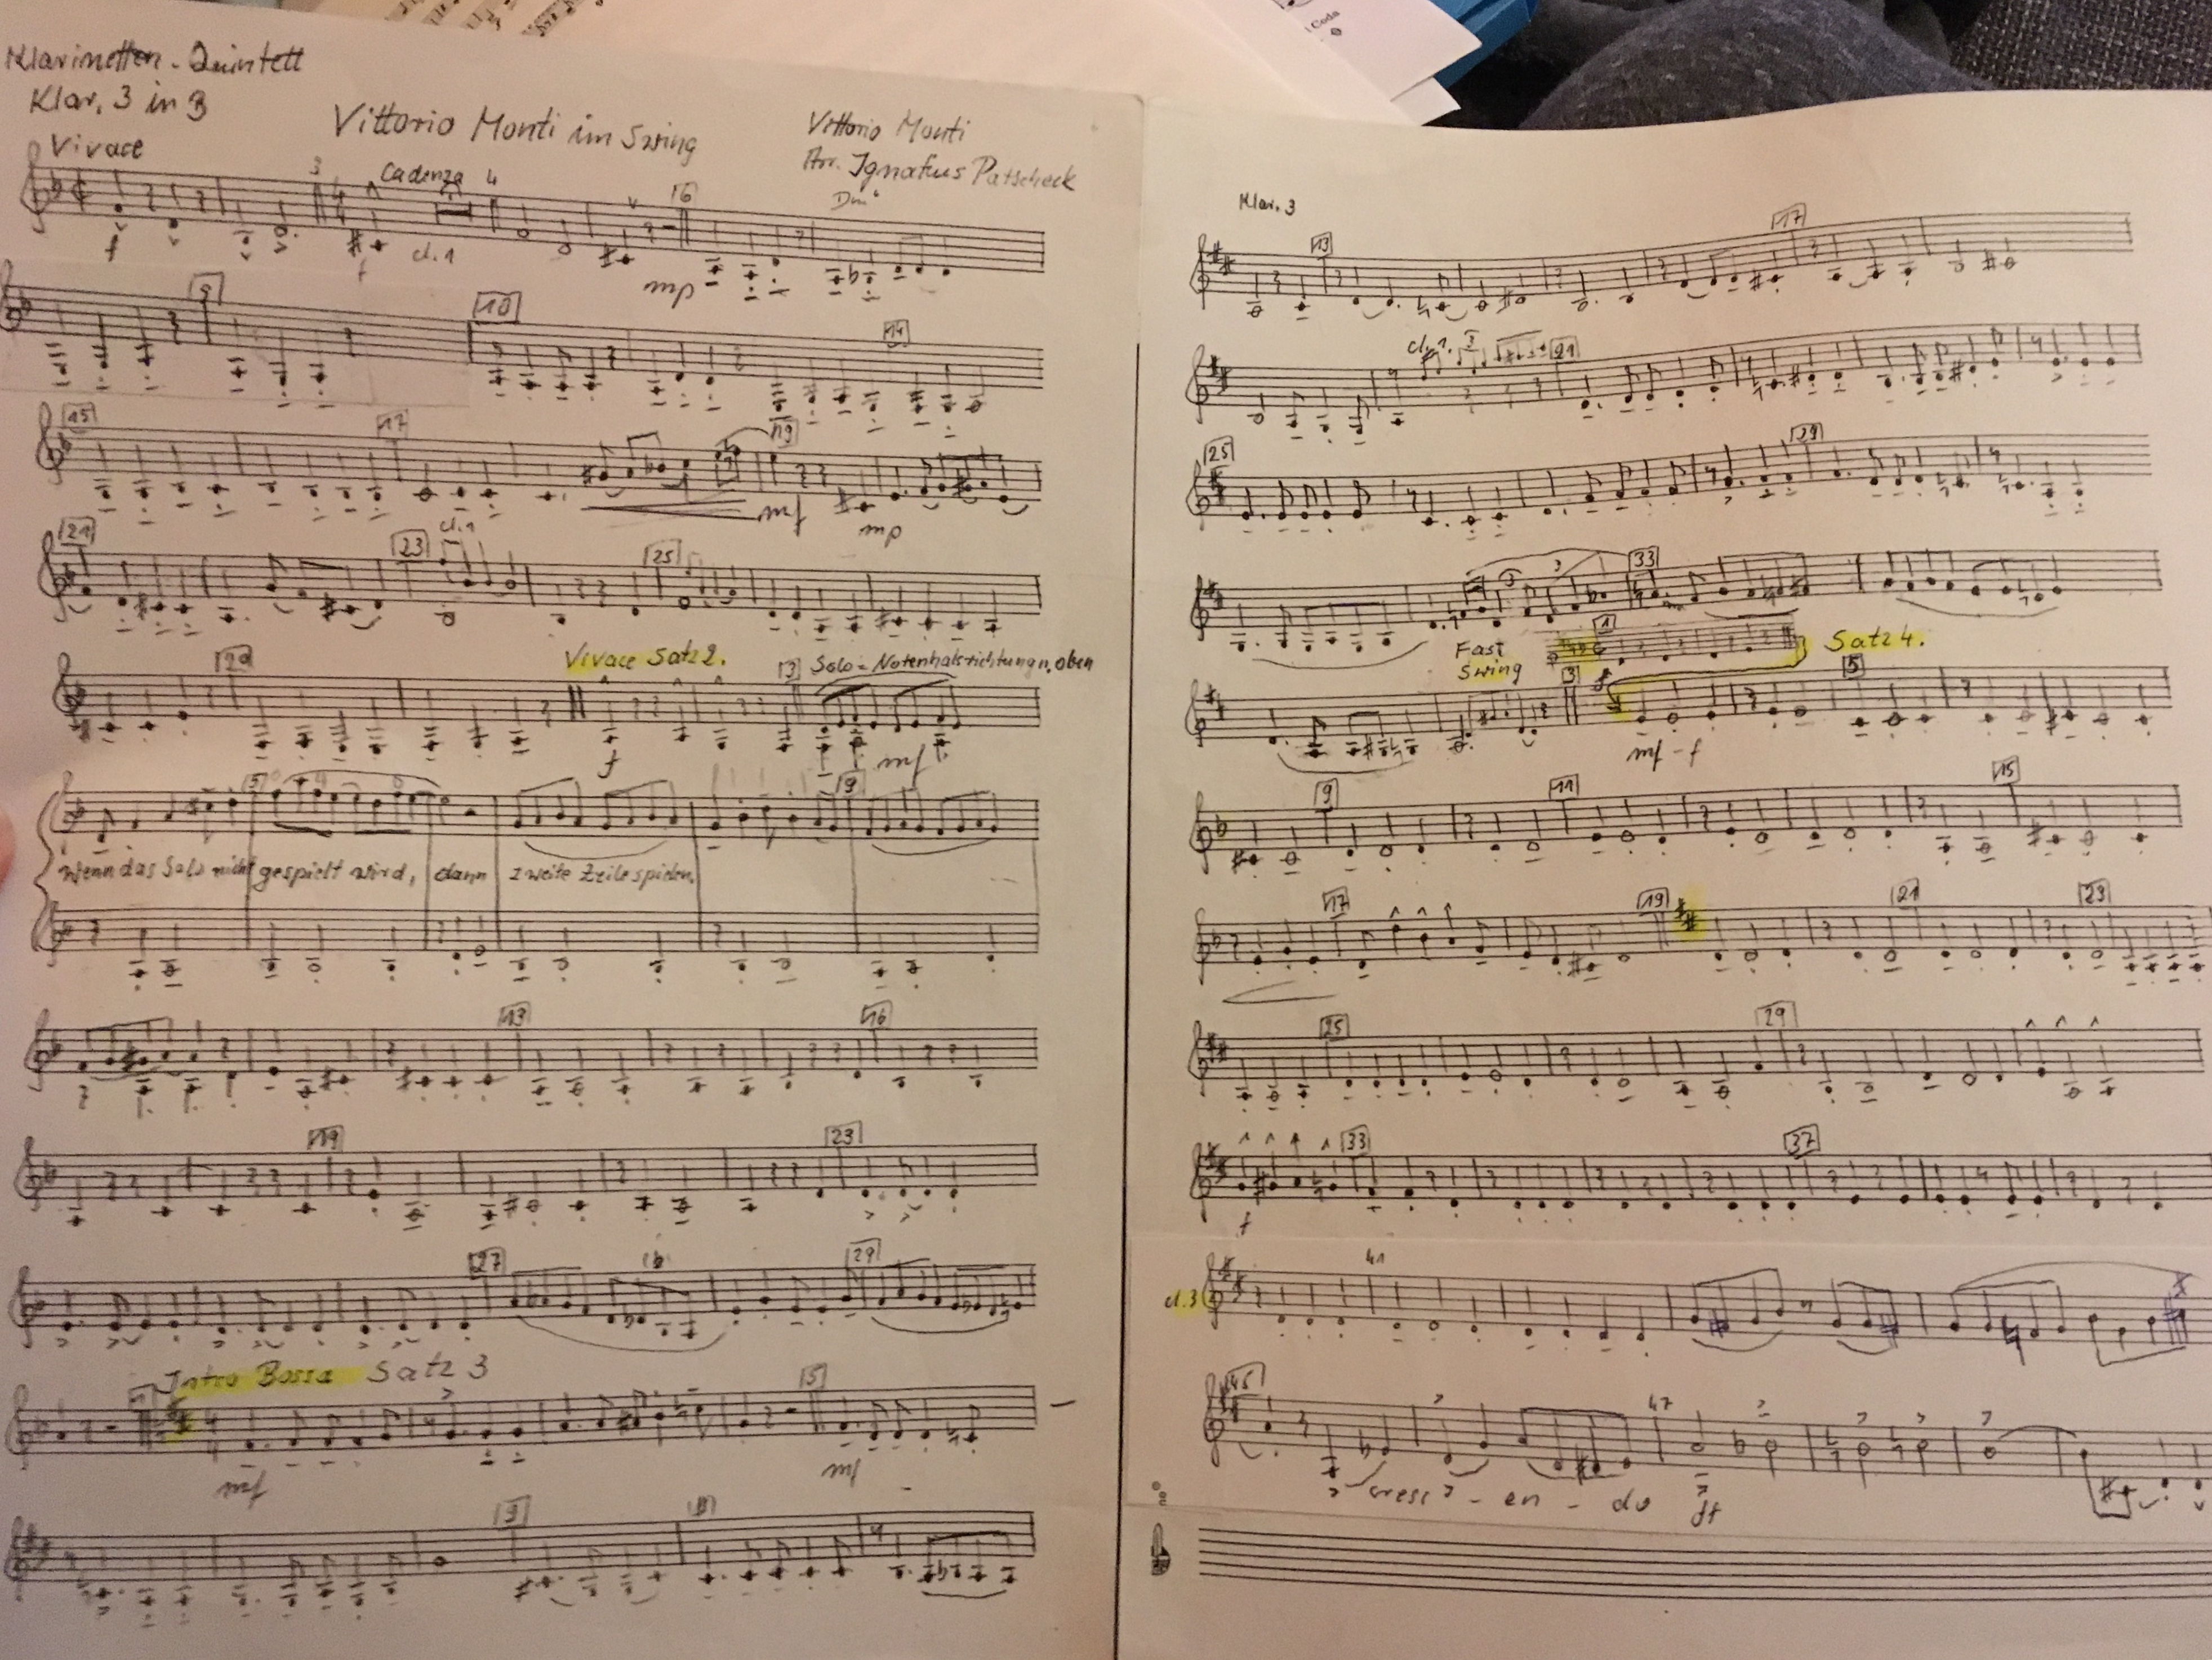 Coda
Klarinetten-Quintett
Klar. 3 in B
Vittorio Monti im Swing
Vittorio Monti
Arr. Ignatius Patscheck
Vivace
3
4
4
Cadenza
4
6
f
f
cl.1
mp
9
10
14
15
17
19
mf
mp
21
23
cl.1
25
29
Vivace Satz 2.
3
Solo = Notenhalsrichtung n. oben
f
mf
5
9
Wenn das Solo nicht gespielt wird, dann zweite Zeile spielen.
13
16
19
23
27
29
Intro Bossa Satz 3
4
4
5
mf
mf
9
11
Klar. 3
13
17
cl. 1.
21
25
29
3
3
33
Fast
Swing
1
Satz 4.
3
5
mf - f
9
11
15
17
19
21
23
25
29
33
37
f
cl.3
41
45
47
cresc - en - do
ff